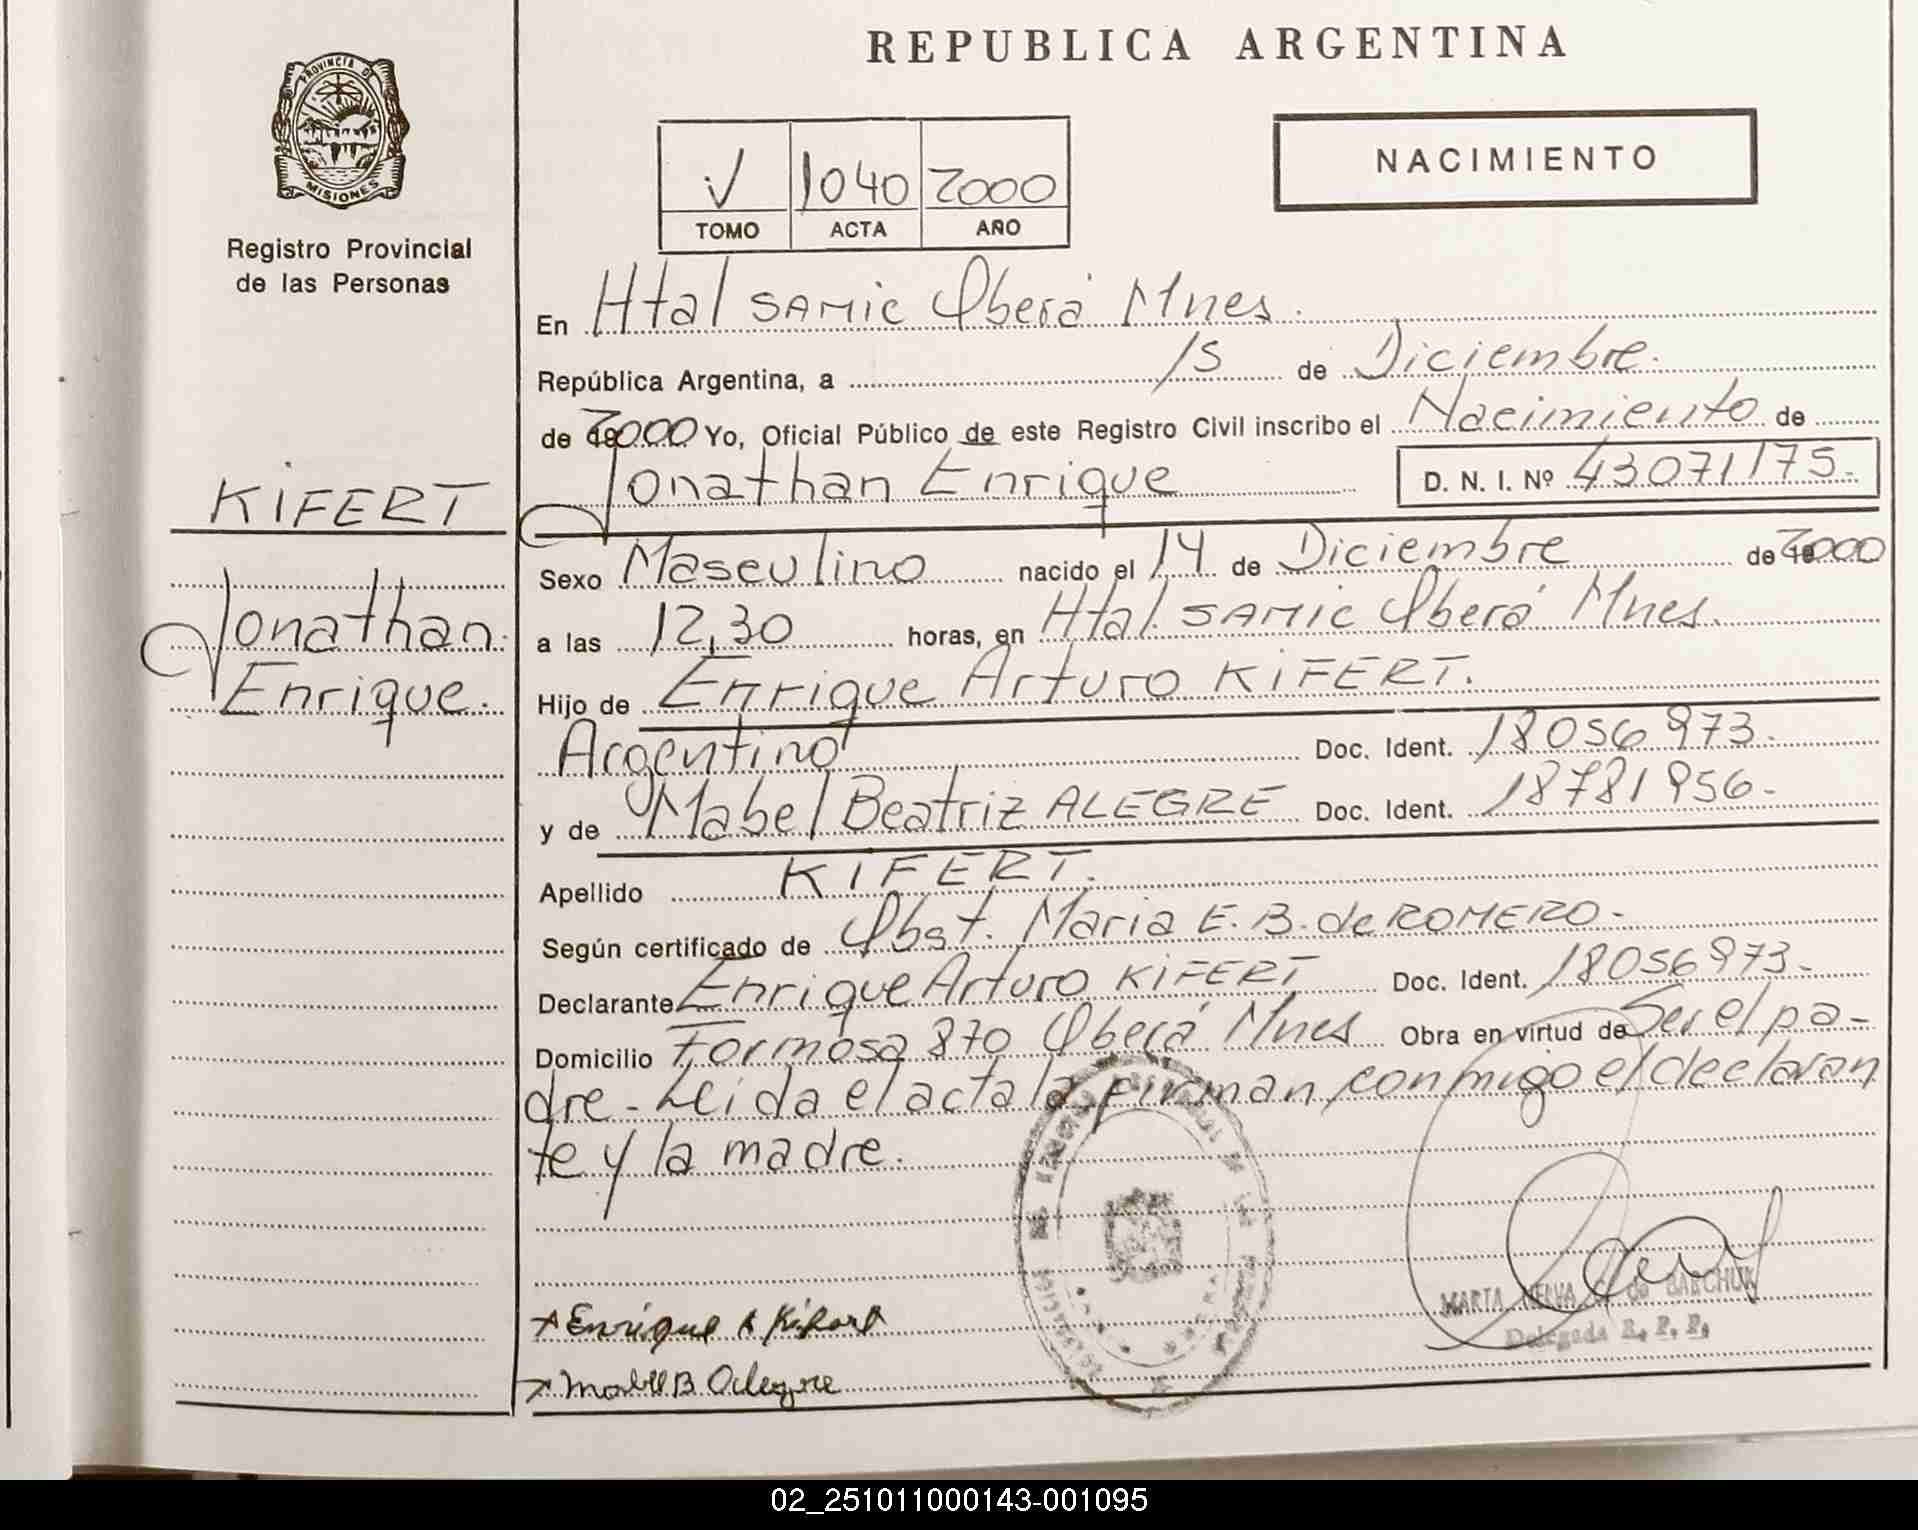 REPUBLICA ARGENTINA
PROVINCIA DE
MISIONES
Registro Provincial
de las Personas
1040 2000
TOMO ACTA AÑO
NACIMIENTO
En Htal SAMIC Oberá Mnes.
República Argentina, a 15 de Diciembre.
de 2000 Yo, Oficial Público de este Registro Civil inscribo el Nacimiento de
Jonathan Enrique D. N. I. Nº 43071175.-
KIFERT
Jonathan
Enrique.
Sexo Masculino nacido el 14 de Diciembre de 2000
a las 12,30 horas, en Htal. SAMIC Oberá Mnes.
Hijo de Enrique Arturo KIFERT.
Argentino Doc. Ident. 18056973.-
y de Mabel Beatriz ALEGRE Doc. Ident. 18781956.-
Apellido KIFERT.
Según certificado de Obst. Maria E. B. de ROMERO.-
Declarante Enrique Arturo KIFERT Doc. Ident. 18056973.-
Domicilio Formosa 870 Oberá Mnes Obra en virtud de Ser el pa-
dre.- Leida el acta la firman conmigo el declaran
te y la madre.
Enrique A Kifert
Mabel B Alegre
MARTA de
Delegada R. P. P.
02_251011000143-001095